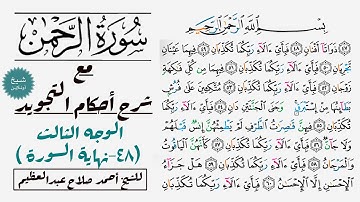 بِسْمِ ٱللَّهِ ٱلرَّحْمَٰنِ ٱلرَّحِيمِ
سُورَةُ الرَّحْمَٰن
مع
شرح أحكام التجويد
الوجه الثالث
(٤٨-نهاية السورة)
للشيخ أحمد صلاح عبدالعظيم
شيخ
اونلاين
ذَوَاتَآ أَفْنَانٖ ٤٨ فَبِأَيِّ ءَالَآءِ رَبِّكُمَا تُكَذِّبَانِ ٤٩ فِيهِمَا عَيْنَانِ
تَجْرِيَانِ ٥٠ فَبِأَيِّ ءَالَآءِ رَبِّكُمَا تُكَذِّبَانِ ٥١ فِيهِمَا مِن كُلِّ فَٰكِهَةٖ
زَوْجَانِ ٥٢ فَبِأَيِّ ءَالَآءِ رَبِّكُمَا تُكَذِّبَانِ ٥٣ مُتَّكِـِٔينَ عَلَىٰ فُرُشِۭ
بَطَآئِنُهَا مِنْ إِسْتَبْرَقٖ وَجَنَى ٱلْجَنَّتَيْنِ دَانٖ ٥٤ فَبِأَيِّ ءَالَآءِ رَبِّكُمَا
تُكَذِّبَانِ ٥٥ فِيهِنَّ قَٰصِرَٰتُ ٱلطَّرْفِ لَمْ يَطْمِثْهُنَّ إِنسٞ قَبْلَهُمْ
وَلَا جَآنّٞ ٥٦ فَبِأَيِّ ءَالَآءِ رَبِّكُمَا تُكَذِّبَانِ ٥٧ كَأَنَّهُنَّ ٱلْيَاقُوتُ
وَٱلْمَرْجَانُ ٥٨ فَبِأَيِّ ءَالَآءِ رَبِّكُمَا تُكَذِّبَانِ ٥٩ هَلْ جَزَآءُ
ٱلْإِحْسَٰنِ إِلَّا ٱلْإِحْسَٰنُ ٦٠ فَبِأَيِّ ءَالَآءِ رَبِّكُمَا تُكَذِّبَانِ ٦١